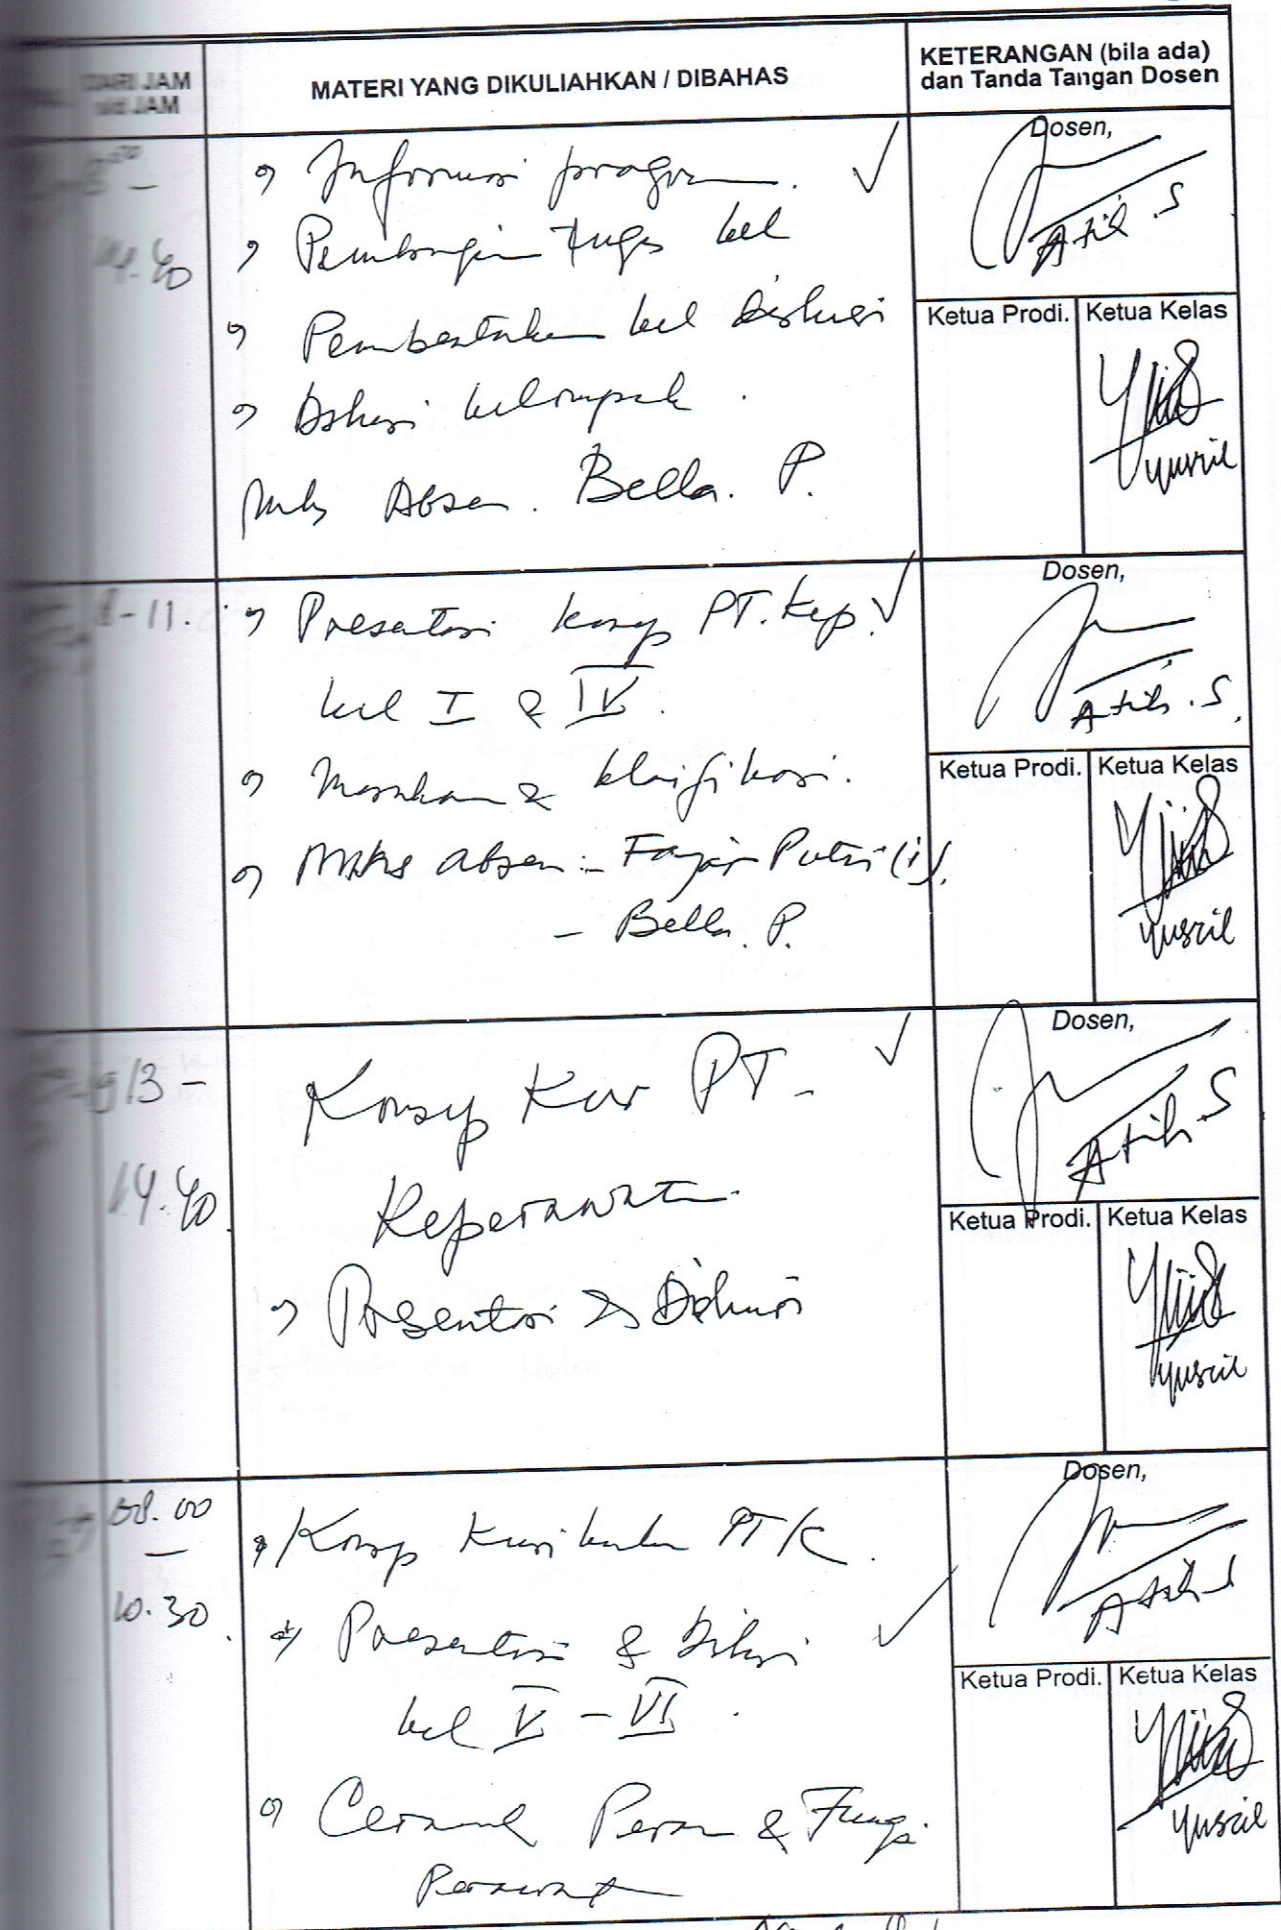 DARI JAM
s/d JAM
MATERI YANG DIKULIAHKAN / DIBAHAS
KETERANGAN (bila ada)
dan Tanda Tangan Dosen
14.40
Informasi program. ✓
Pembagian tugas kel
Pembentukan kel diskusi
Diskusi kelompok.
Mhs Absen. Bella. P.
Dosen,
Atih .S
Ketua Prodi.
Ketua Kelas
yusril
8-11.
Presentasi konsep PT. Kep. ✓
kel I & IV.
Masukan & klarifikasi.
Mhs absen :- Fajar Putri (i).
- Bella. P.
Dosen,
Atih .S.
Ketua Prodi.
Ketua Kelas
yusril
13 -
14.40
Konsep Kur PT - ✓
Keperawatan.
Presentasi & Diskusi
Dosen,
Atih .S
Ketua Prodi.
Ketua Kelas
yusril
08.00
—
10.30.
Konsep Kurikulum PTK.
Presentasi & Diskusi ✓
kel V - VI.
Ceramah Peran & Fungsi
Perawat
Dosen,
Atih S
Ketua Prodi.
Ketua Kelas
yusril